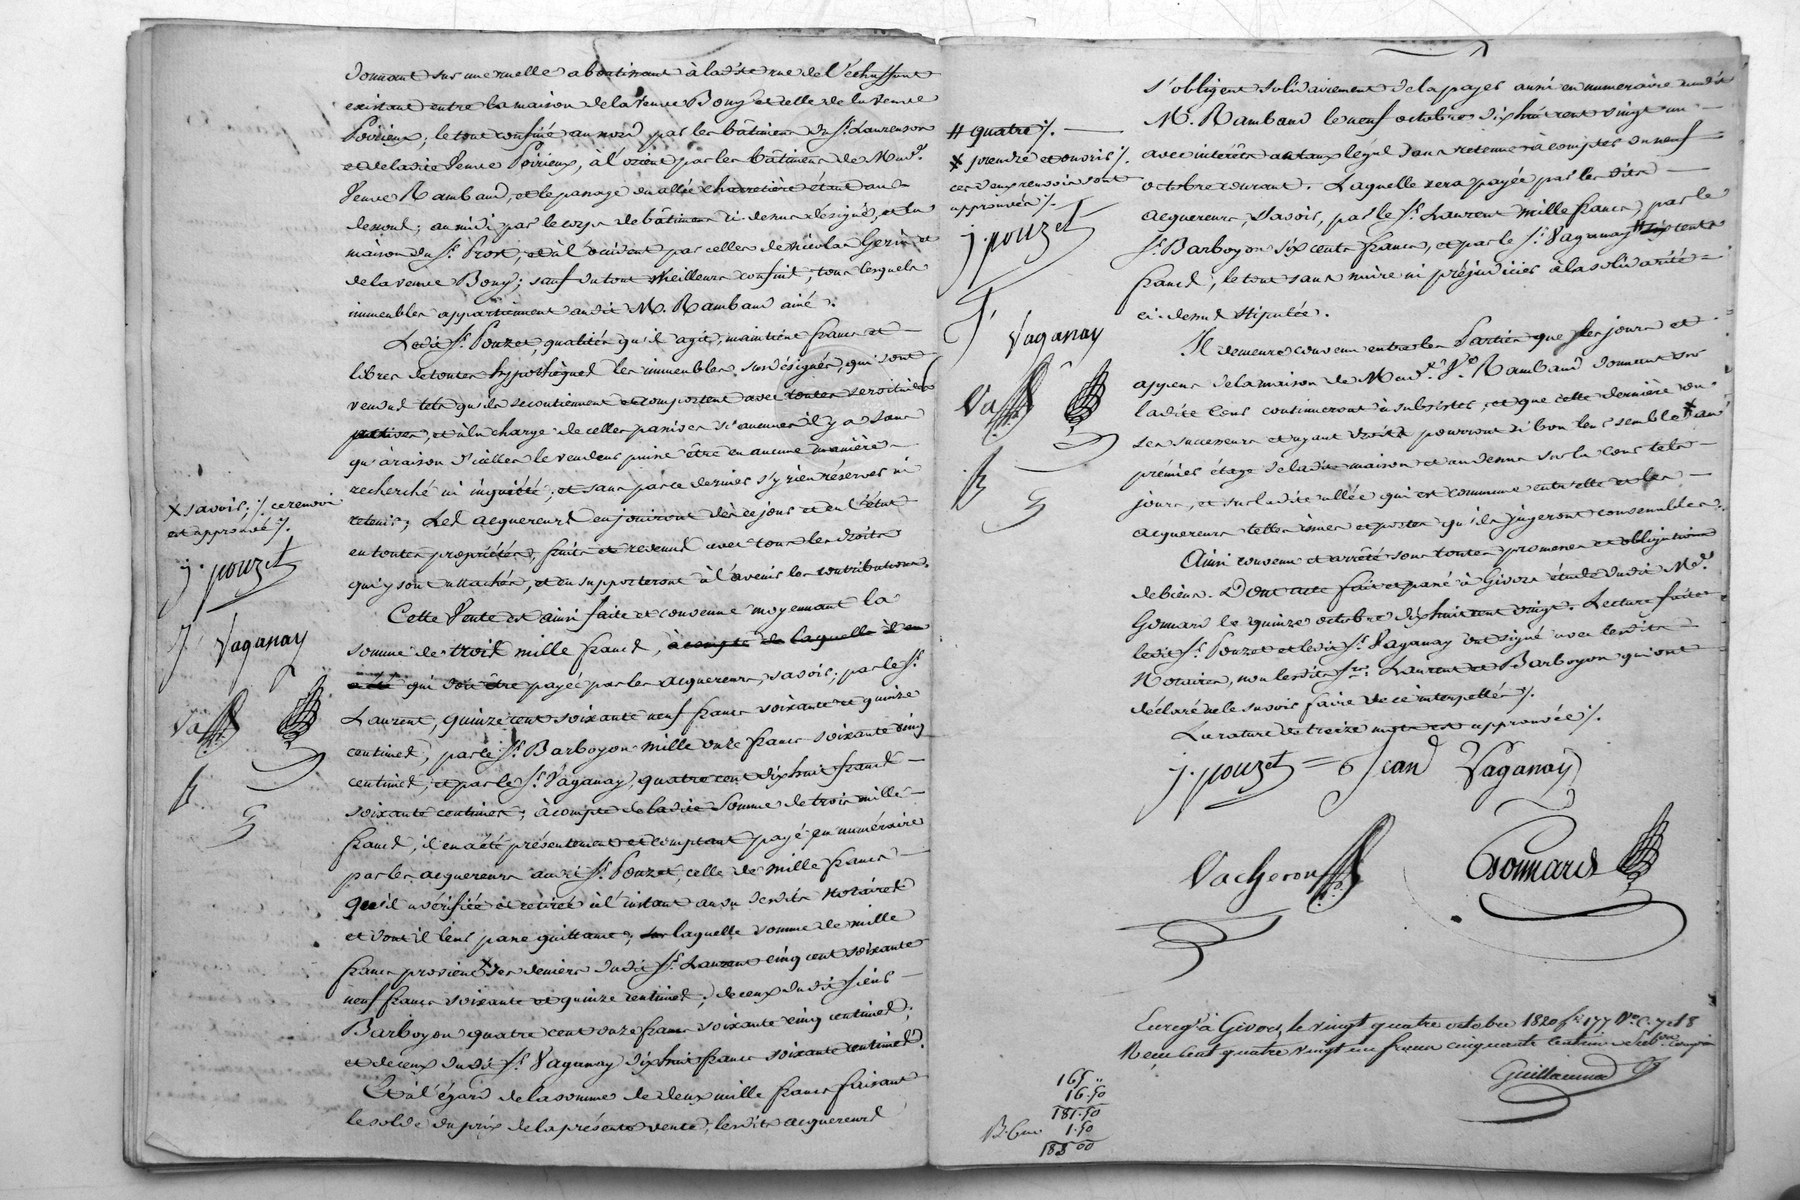 donnant sur une ruelle aboutissant à ladite rue de l'échassant
existant entre la maison de la veuve Bony et celle de la veuve
Poirieux; le tout confiné au nord, par les bâtimens du Sr. Laurenson
et de ladite Veuve Poirieux, à l'orient par les bâtimens de Made.
Veuve Rambaud, et le passage ou allée charretière étant au
dessous; au midi par le corps de bâtimens ci-dessus désigné, et la
maison du Sr. Prost, et à l'occident par celles de Nicolas Gerin et
de la veuve Bony; sauf du tout meilleurs confins, tous lesquels
immeubles appartiennent audit M. Rambaud ainé.
Ledit Sr. Pouzet, qualités qu'il agit, maintient francs et
libres de toutes hypothèques les immeubles susdésignés, qui sont
vendus tels qu'ils se contiennent et comportent avec toutes servitudes
actives, et à la charge de celles passives si aucunes il y a sans
qu'à raison d'icelles le vendeur puisse être en aucune manière
recherché ni inquiété, et sans par ce dernier s'y rien réserver ni
retenir; Les acquereurs en jouiront dès ce jour et en l'état
en toutes propriétés, fruits et revenus avec tous les droits
qui y sont attachés, et en supporteront à l'avenir les contributions.
Cette Vente est ainsi faite et convenue moyennant la
somme de trois mille francs, à compte de laquelle il en
a été qui doit être payée par les acquereurs, savoir; par le Sr.
Laurent, quinze cent soixante neuf francs soixante et quinze
centimes, par le Sr. Barboyon mille onze francs soixante cinq
centimes, et par le Sr. Vaganay, quatre cent dix huit francs
soixante centimes; à compte de ladite somme de trois mille
francs, il en a été présentement et comptant payé en numéraire
par les acquereurs audit Sr. Pouzet, celle de mille francs
qu'il a vérifiée et retirée à l'instant au vu desdits notaires
et dont il leur passe quittance; sur laquelle somme de mille
francs provient X des deniers dudit Sr. Laurent cinq cent soixante
neuf francs soixante et quinze centimes; de ceux dudit sieur
Barboyon quatre cent onze francs soixante cinq centimes;
et de ceux dudit Sr. Vaganay dix huit francs soixante centimes.
Et à l'égard de la somme de deux mille francs faisant
le solde du prix de la présente vente, lesdits acquereurs
X savoir; /. ce renvoi
est approuvé /.
j. pouzet
J. Vaganay
s'obligent solidairement de la payer aussi en numéraire audit
M. Rambaud le neuf octobre dix huit cent vingt un
avec intérêts au taux légal sans retenue à compter du neuf
octobre courant. Laquelle sera payée par lesdits
acquereurs, savoir, par le Sr. Laurent mille francs, par le
Sr. Barboyon six cents francs, et par le Sr. Vaganay # six cents
francs, le tout sans nuire ni préjudicier à la solidarité
ci-dessus stipulée.
Il demeure convenu entre les Parties que les jours et
appens de la maison de Made. Ve. Rambaud donnant sur
ladite cour continueront à subsister, et que cette dernière ou
ses successeurs et ayant droits pourront si bon leur semble X au
premier étage de ladite maison et au dessus sur la cour tels
jours, et sur ladite allée qui est commune entr'elle et les
acquereurs telles prises et portes qu'ils jugeront convenables.
Ainsi convenu et arrêté sous toutes promesses et obligations
de biens. Dont acte fait et passé à Givors étude dudit Me.
Gonnard le quinze octobre dix huit cent vingt. Lecture faite
ledit Sr. Pouzet et ledit Sr. Vaganay ont signé avec lesdits
Notaires, non lesdits Srs. Laurent et Barboyon qui ont
déclaré ne le savoir faire de ce interpellés /.
La rature de treize mots est approuvée /.
j. pouzet Jean Vaganay
Vacheron Gonnard
# quatre /.
X prendre et ouvrir /.
ces deux renvois sont
approuvés /.
j. pouzet
J. Vaganay
Enregé. à Givors, le vingt quatre octobre 1820 fo. 177 Vo. C. 7 et 8
Reçu cent quatre vingt un francs cinquante centimes subon. compris
Guillaumod
165 "
16.50
181.50
1.50
183 00